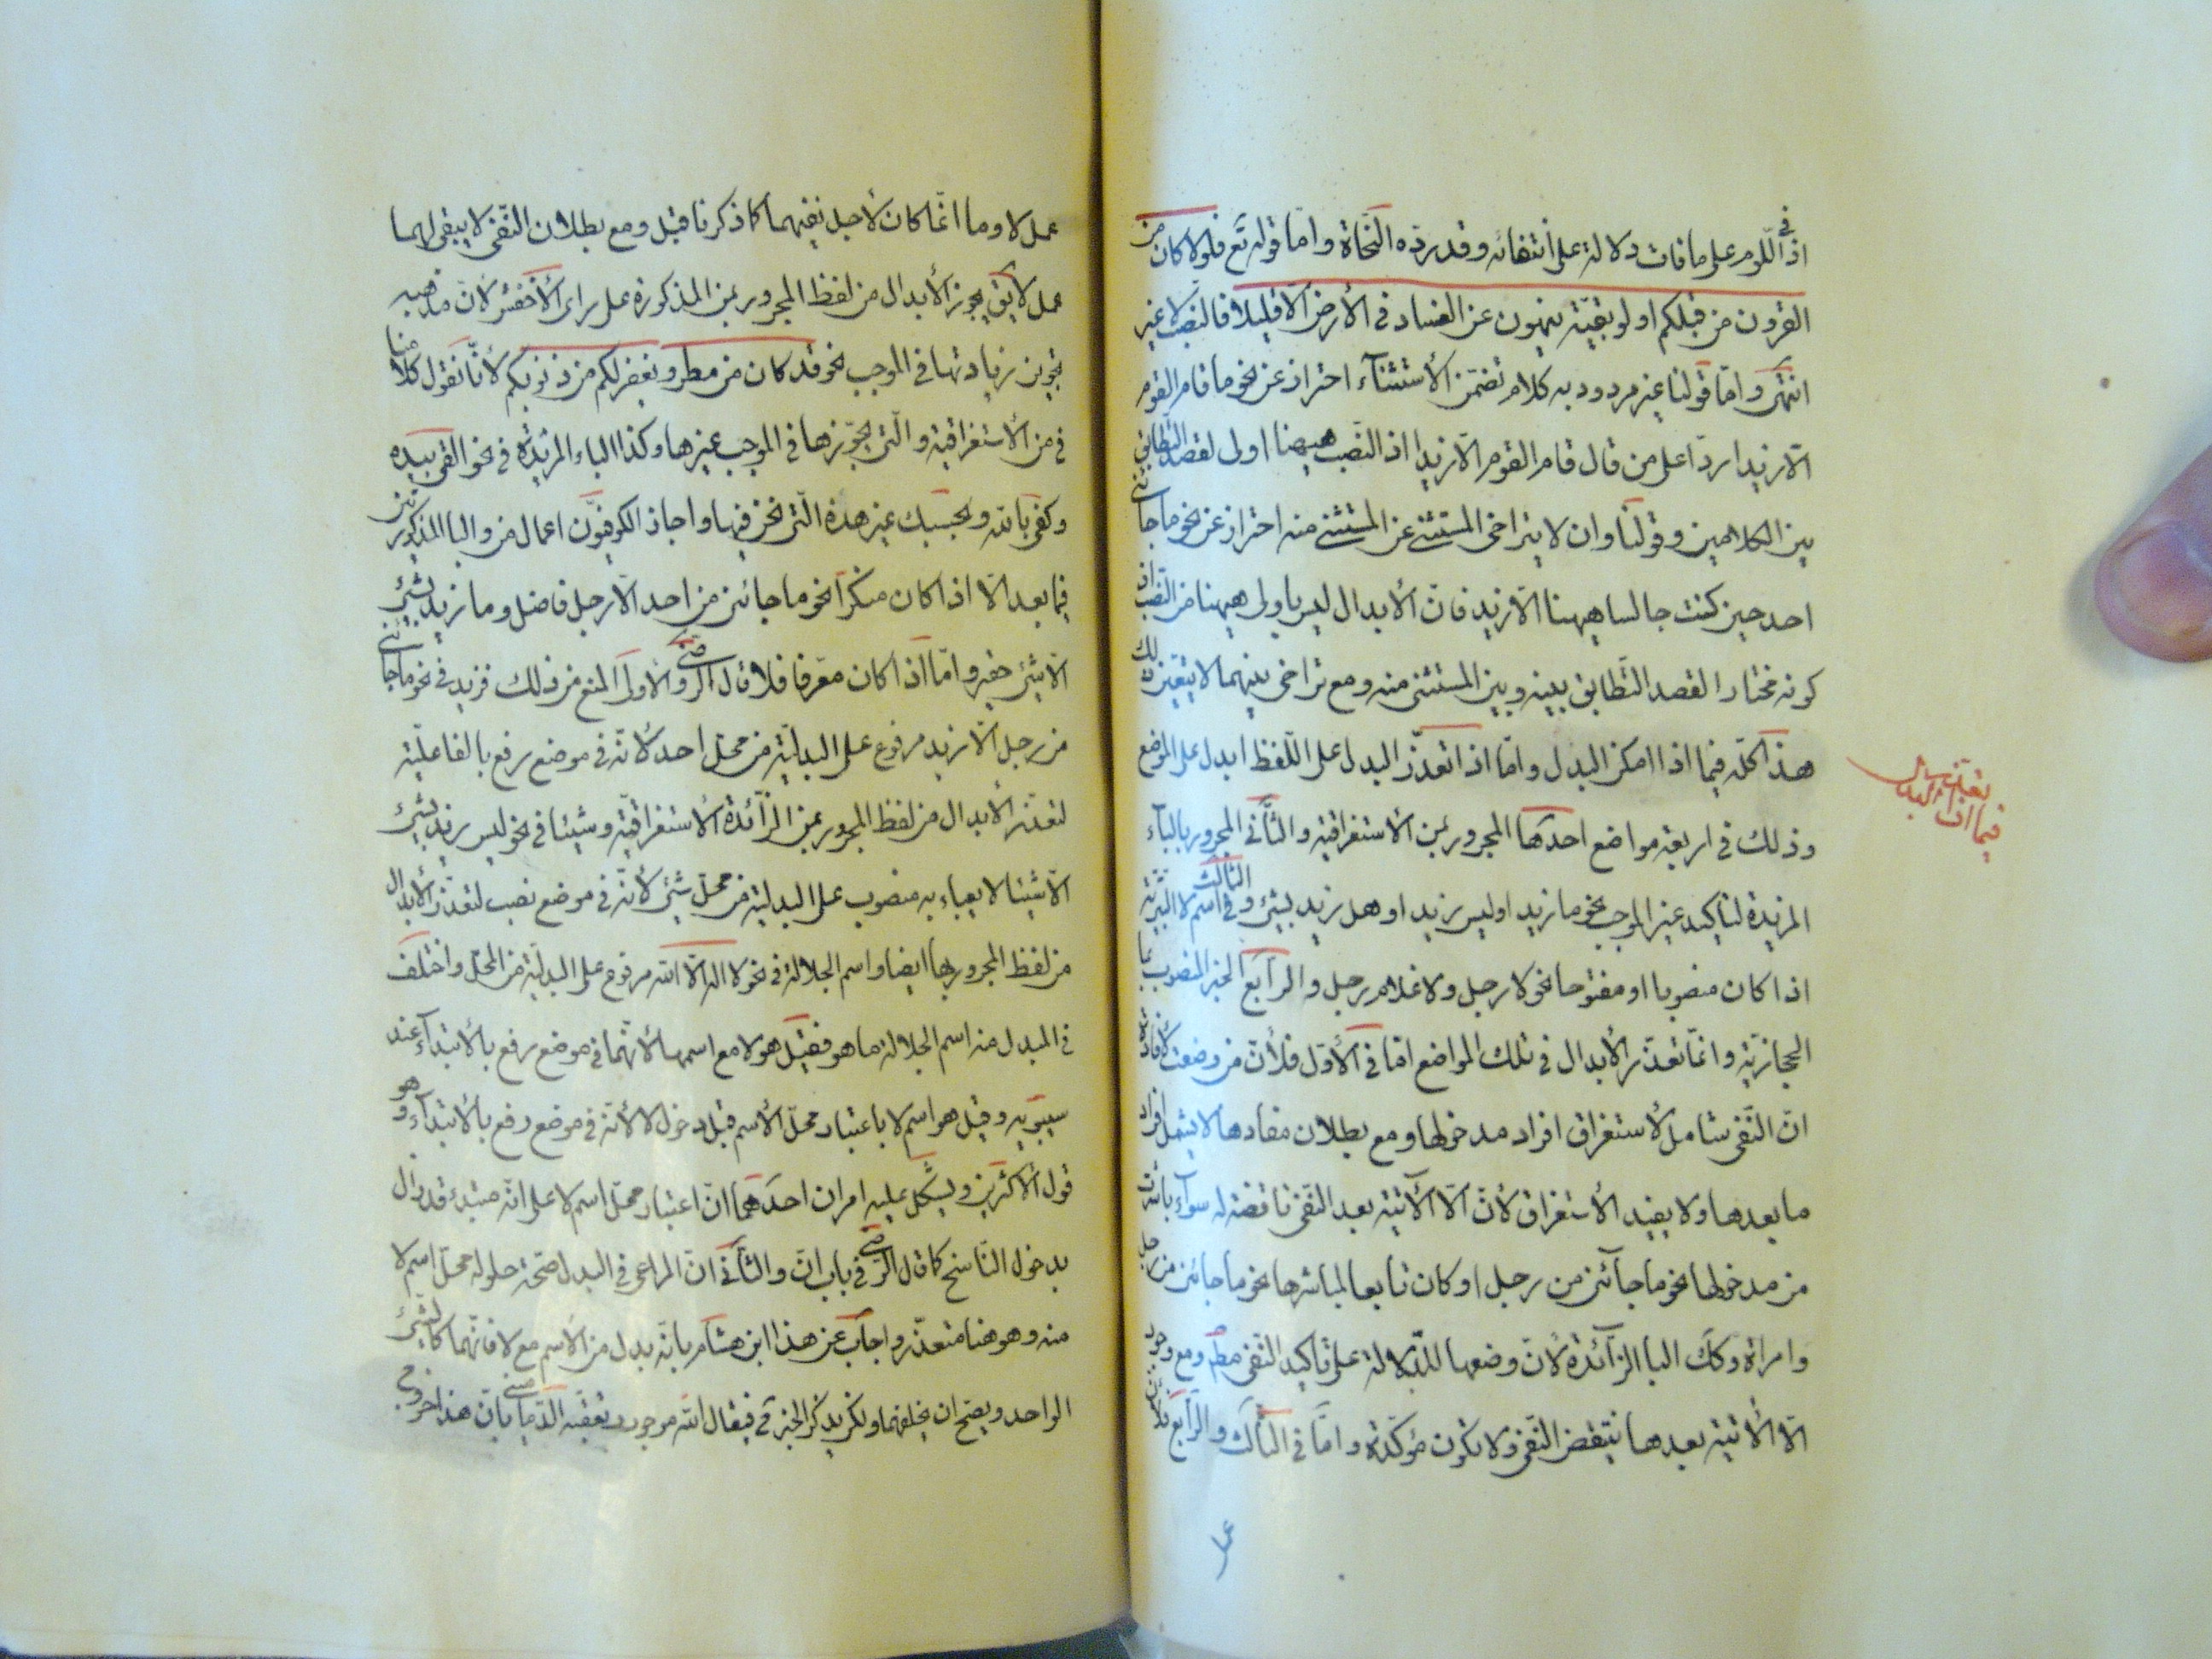 اذ في اللوم على ما فات دلالة على انتفائه وقد ردّه النحاة وامّا قوله تع فلولا كان من
القرون من قبلكم اولو بقيّة ينهون عن الفساد في الأرض الّا قليلا فالنصب لا غير
انتهى وامّا قولنا غير مردود به كلام تضمّن الأستثنآء احتراز عن نحو ما قام القوم
الّا زيدا ردّا على من قال قام القوم الّا زيدا اذ النّصب هيهنا اولى لقصد التطابق
بين الكلامين وقولنا وان لا يتراخى المستثنى عن المستثنى منه احتراز عن نحو ما جائنى
احد حين كنت جالسا هيهنا الّا زيد فانّ الأبدال ليس باولى هيهنا من النصب اذ
كونه مختارا لقصد التّطابق بينه وبين المستثنى منه ومع تراخى بينهما لا يتعيّن ذلك
هذا كلّه فيما اذا امكن البدل وامّا اذا تعذّر البدل على اللّفظ ابدل على الموضع
فيما اذا تعذّر البدل
وذلك في اربعة مواضع احدها المجرور بمن الأستغراقية والثّاني المجرور بالبآء
المزيدة لتاكيد غير الموجب نحو ما زيد اوليس زيد او هل زيد بشيء والثالث في اسم لا التبرئة
اذا كان منصوبا او مفتوحا نحو لا رجل ولا غلام رجل والرّابع الخبر المنصوب بما
الحجازيّة وانّما تعذّر الأبدال في تلك المواضع امّا في الأوّل فلأنّ من وضعت لأفادة
انّ النّفى شامل لأستغراق افراد مدخولها ومع بطلان مفادها لا يشمل افراد
ما بعدها ولا يفيد الأستغراق لأنّ الّا الآتية بعد النّفى ناقضة له سوآء باشرت
من مدخولها نحو ما جآئنى من رجل او كان تابعا لمباشرها نحو ما جائنى من رجل
وامراة وكك البا الزّآئدة لأنّ وضعها للدّلالة على تاكيد النّفى مط ومع وجود
الّا الأتية بعدها ينتقض النّفى ولا يكون مؤكّدة وامّا في الثّالث والرّابع فلأنّ
عمل لا وما انّما كان لأجل نفيهما كما ذكرنا قبل ومع بطلان النّفى لا يبقى لهما
عمل لا يق يجوز الأبدال من لفظ المجرور بمن المذكورة على راى الأخفش لأنّ مذهبه
تجويز زيادتها في الموجب نحو قد كان من مطر ويغفر لكم من ذنوبكم لأنّا نقول كلامنا
في من الأستغراقية والّتى يجوّزها في الموجب غيرها وكذا الباء المزيدة في نحو القى بيده
وكفى بالله وبحسبك غير هذه الّتى نحن فيها واجاز الكوفيّون اعمال من والبا المذكورتين
فيما بعد الّا اذا كان منكّرا نحو ما جائنى من احد الّا رجل فاضل وما زيد بشيء
الّا شيء حقير وامّا اذا كان معرّفا فلا قال الرضى والأولى المنع من ذلك فزيد في نحو ما جائنى
من رجل الّا زيد مرفوع على البدليّة من محلّ احد لأنّه في موضع رفع بالفاعليّة
لتعذّر الأبدال من لفظ المجرور بمن الزّآئدة الأستغراقيّة وشيئا في نحو ليس زيد بشيء
الّا شيئا لا يعباء به منصوب على البدلية من محلّ شيء لأنّه في موضع نصب لتعذّر الأبدال
من لفظ المجرور بها ايضا واسم الجلالة في نحو لا اله الّا الله مرفوع على البدليّة من المحلّ واختلف
في المبدل منه اسم الجلالة ما هو فقيل هو لا مع اسمها لأنّهما في موضع رفع بالأبتدآء عند
سيبويه وقيل هو اسم لا باعتبار محلّ الأسم قبل دخول لا لأنّه في موضع رفع بالأبتدآء وهو
قول الأكثرين ويشكل عليه امران احدهما انّ اعتبار محلّ اسم لا على انّه مبتدء قد زال
بدخول النّاسخ كما قال الرضى في باب انّ والثّاني انّ المراعى في البدل صحّة حلوله محلّ اسم لا
منه وهو هنا متعذّر واجاب عن هذا ابن هشام بانّه بدل من الأسم مع لا فانّهما كالشّيء
الواحد ويصحّ ان يخلفهما ولكن يذكر الخبر ح فيقال الله موجود وتعقّبه الدّمامينى بانّ هذا خروج